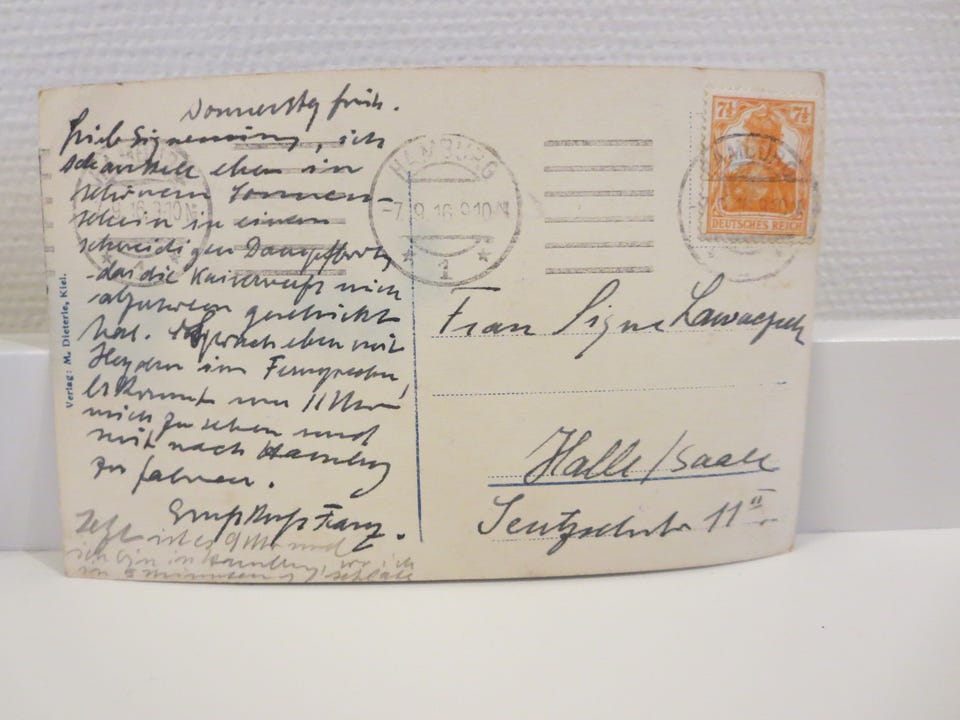 Donnerstag früh.
ich
schaukele eben in
schönem Sonnen-
schein in einem
schneidigen Dampfboot,
das die Kaiserwerft mich
abzuholen geschickt
hat. sprach eben mit
Heyden im Fernsprecher,
er kommt um 11 Uhr
mich zu sehen und
mit nach Hamburg
zu fahren.
Gruß Kuß Franz.
Jetzt ist es 9 Uhr und
ich bin in Hamburg, wo ich
in 5 Minuten schlafe
Verlag: M. Dieterle, Kiel.
HAMBURG
-7.9.16.9-10N
* 1 *
7½ 7½
DEUTSCHES REICH
HAMBURG
Frau Signe Lawaczeck
Halle/Saale
11 II